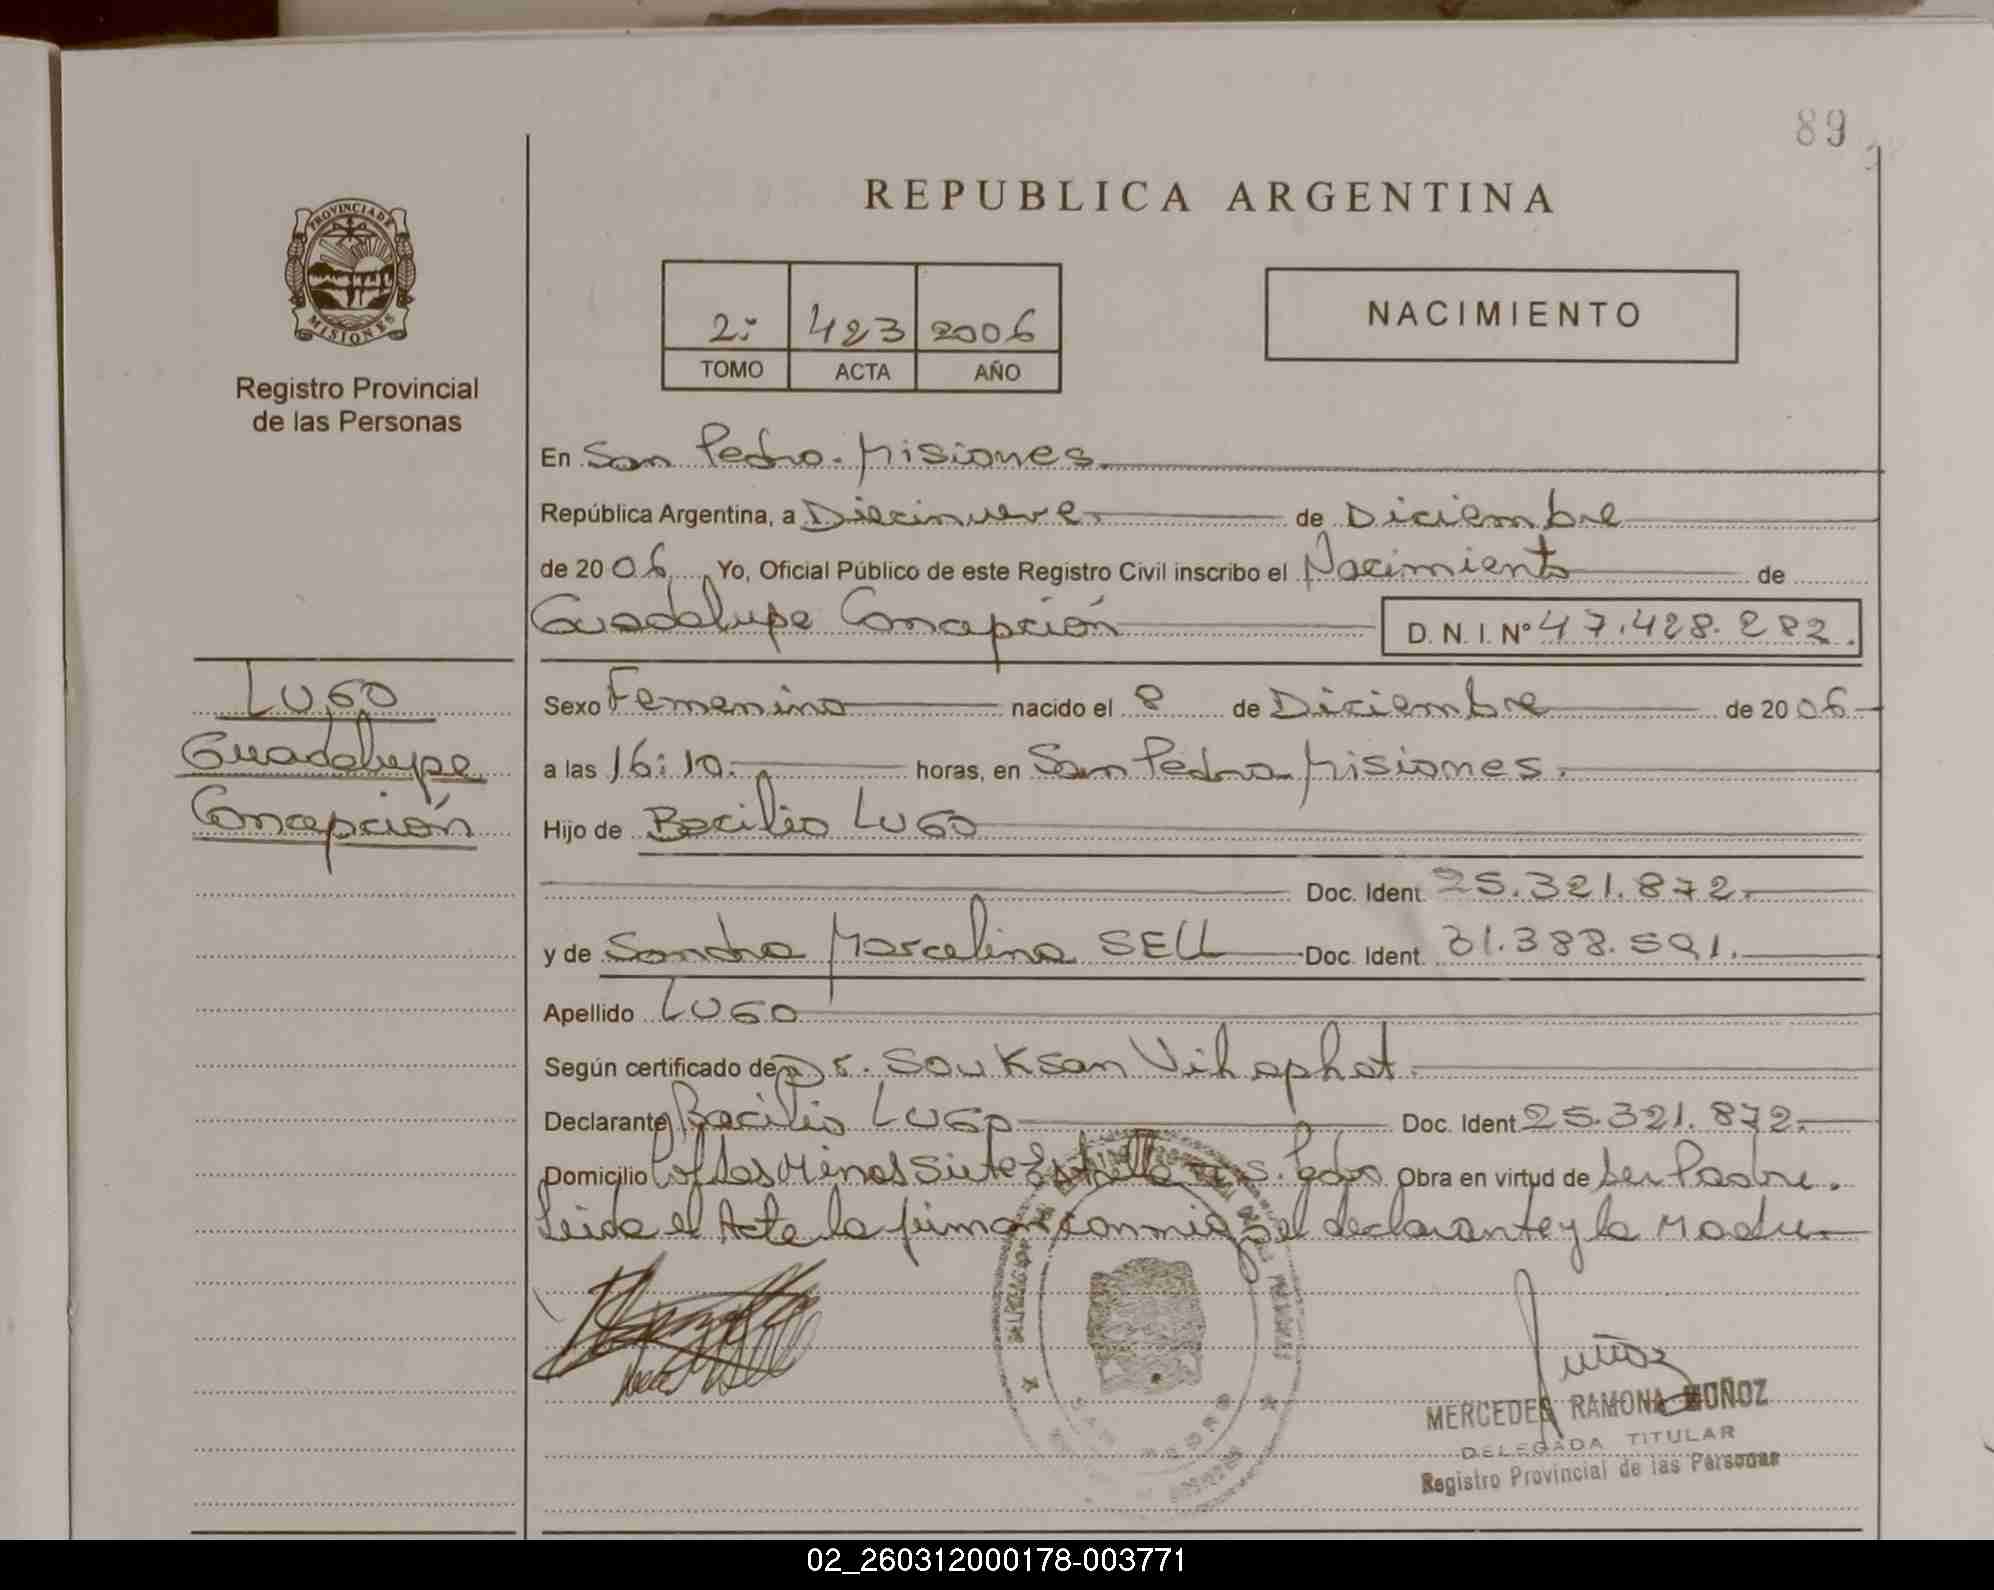 89
REPUBLICA ARGENTINA
PROVINCIA DE
MISIONES
2º 423 2006
TOMO ACTA AÑO
NACIMIENTO
Registro Provincial
de las Personas
En San Pedro. Misiones.
República Argentina, a Diecinueve. de Diciembre
de 20 06 Yo, Oficial Público de este Registro Civil inscribo el Nacimiento de
Guadalupe Concepción D. N. I. Nº 47.428.282.
LUGO
Guadalupe
Concepción
Sexo Femenino nacido el 8 de Diciembre de 20 06
a las 16:10. horas, en San Pedro Misiones.
Hijo de Bacilio LUGO
Doc. Ident. 25.321.872.
y de Sandra Marcelina SELL Doc. Ident. 31.388.591.
Apellido LUGO
Según certificado de Dr. Souksan Vihaphat.
Declarante Bacilio LUGO Doc. Ident. 25.321.872.
Domicilio Col Las Minas Siete Estrellas S. Pedro Obra en virtud de ser Padre.
Leida el Acta la firman conmigo el declarante y la Madre
SAN PEDRO
MISIONES
Muñoz
MERCEDES RAMONA MUÑOZ
DELEGADA TITULAR
Registro Provincial de las Personas
02_260312000178-003771